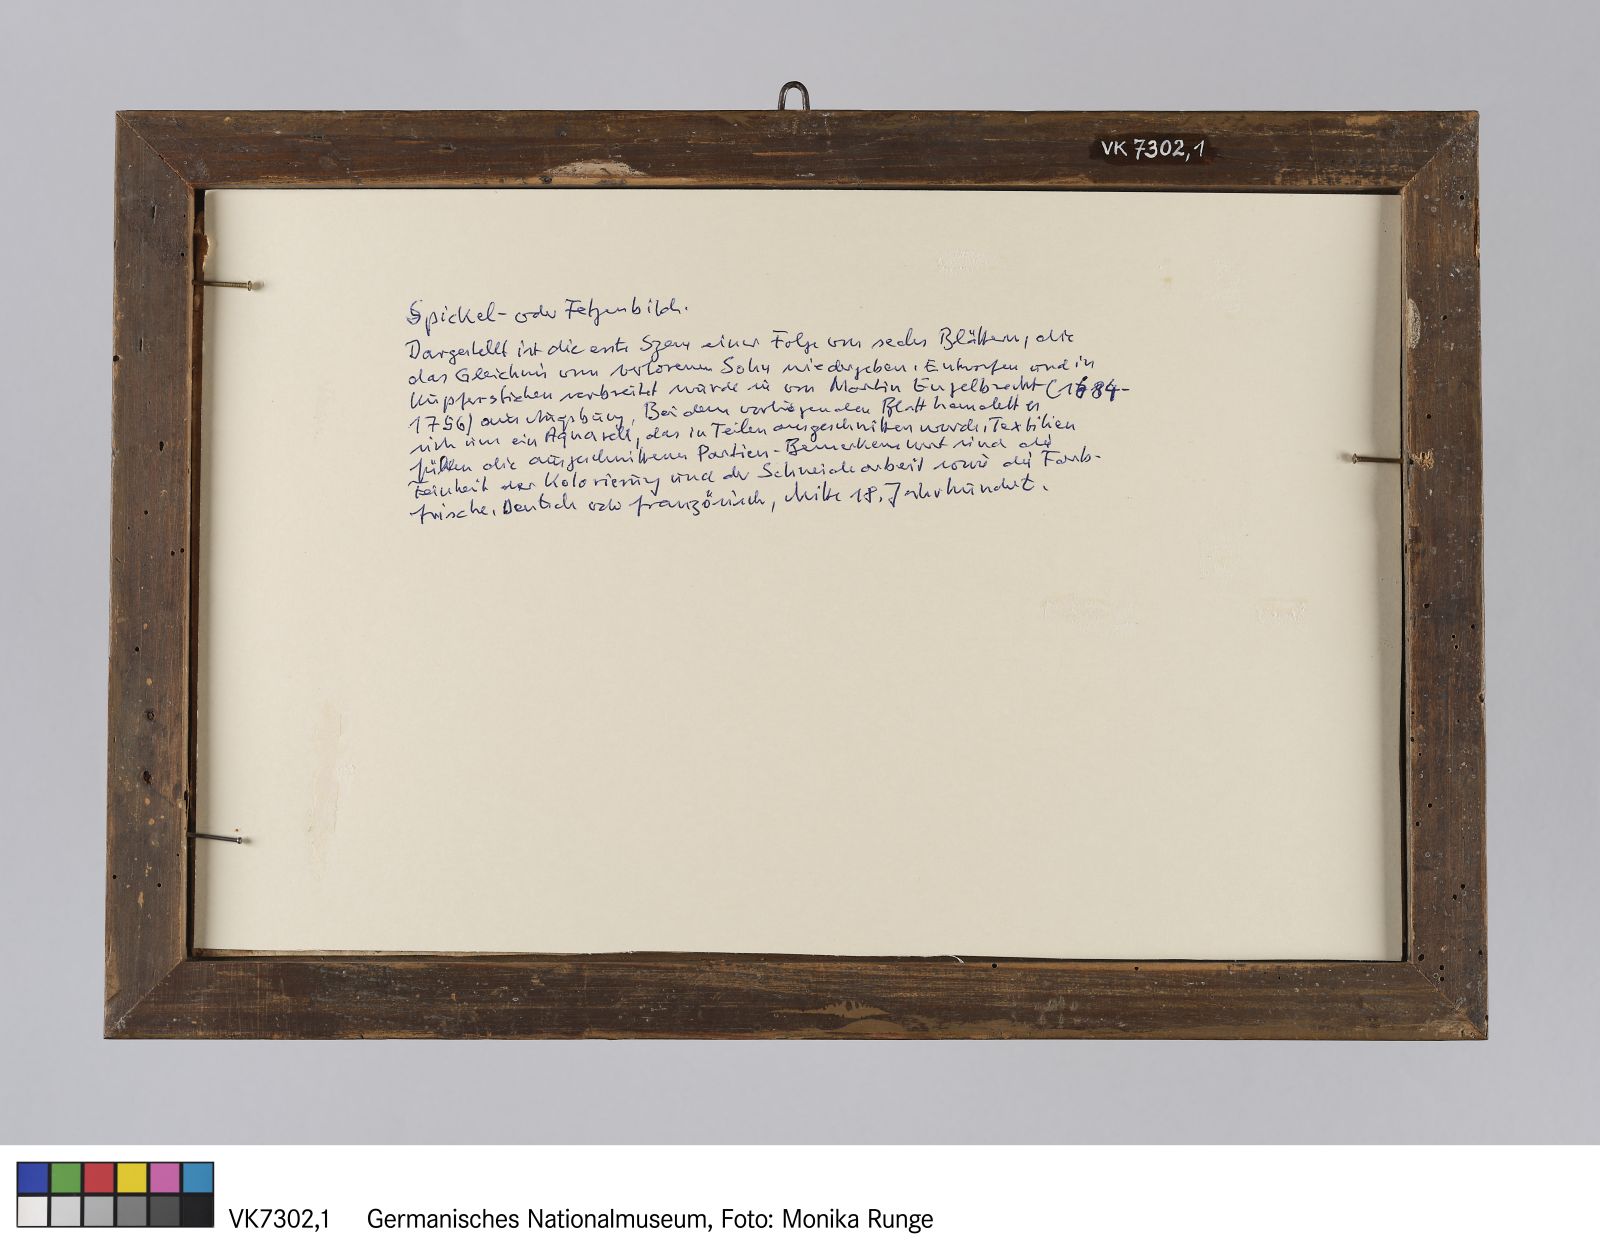 VK 7302,1
Spickel- oder Fetzenbild.
Dargestellt ist die erste Szene einer Folge von sechs Blättern, die
das Gleichnis vom verlorenen Sohn wiedergeben. Entworfen und in
Kupferstichen verbreitet wurde sie von Martin Engelbrecht (1684-
1756) aus Augsburg. Bei dem vorliegenden Blatt handelt es
sich um ein Aquarell, das in Teilen ausgeschnitten wurde. Textilien
füllen die ausgeschnittenen Partien - Bemerkenswert sind die
Feinheit der Kolorierung und der Schneidearbeit sowie die Farb-
frische. Deutsch oder französisch, Mitte 18. Jahrhundert.
VK7302,1 Germanisches Nationalmuseum, Foto: Monika Runge